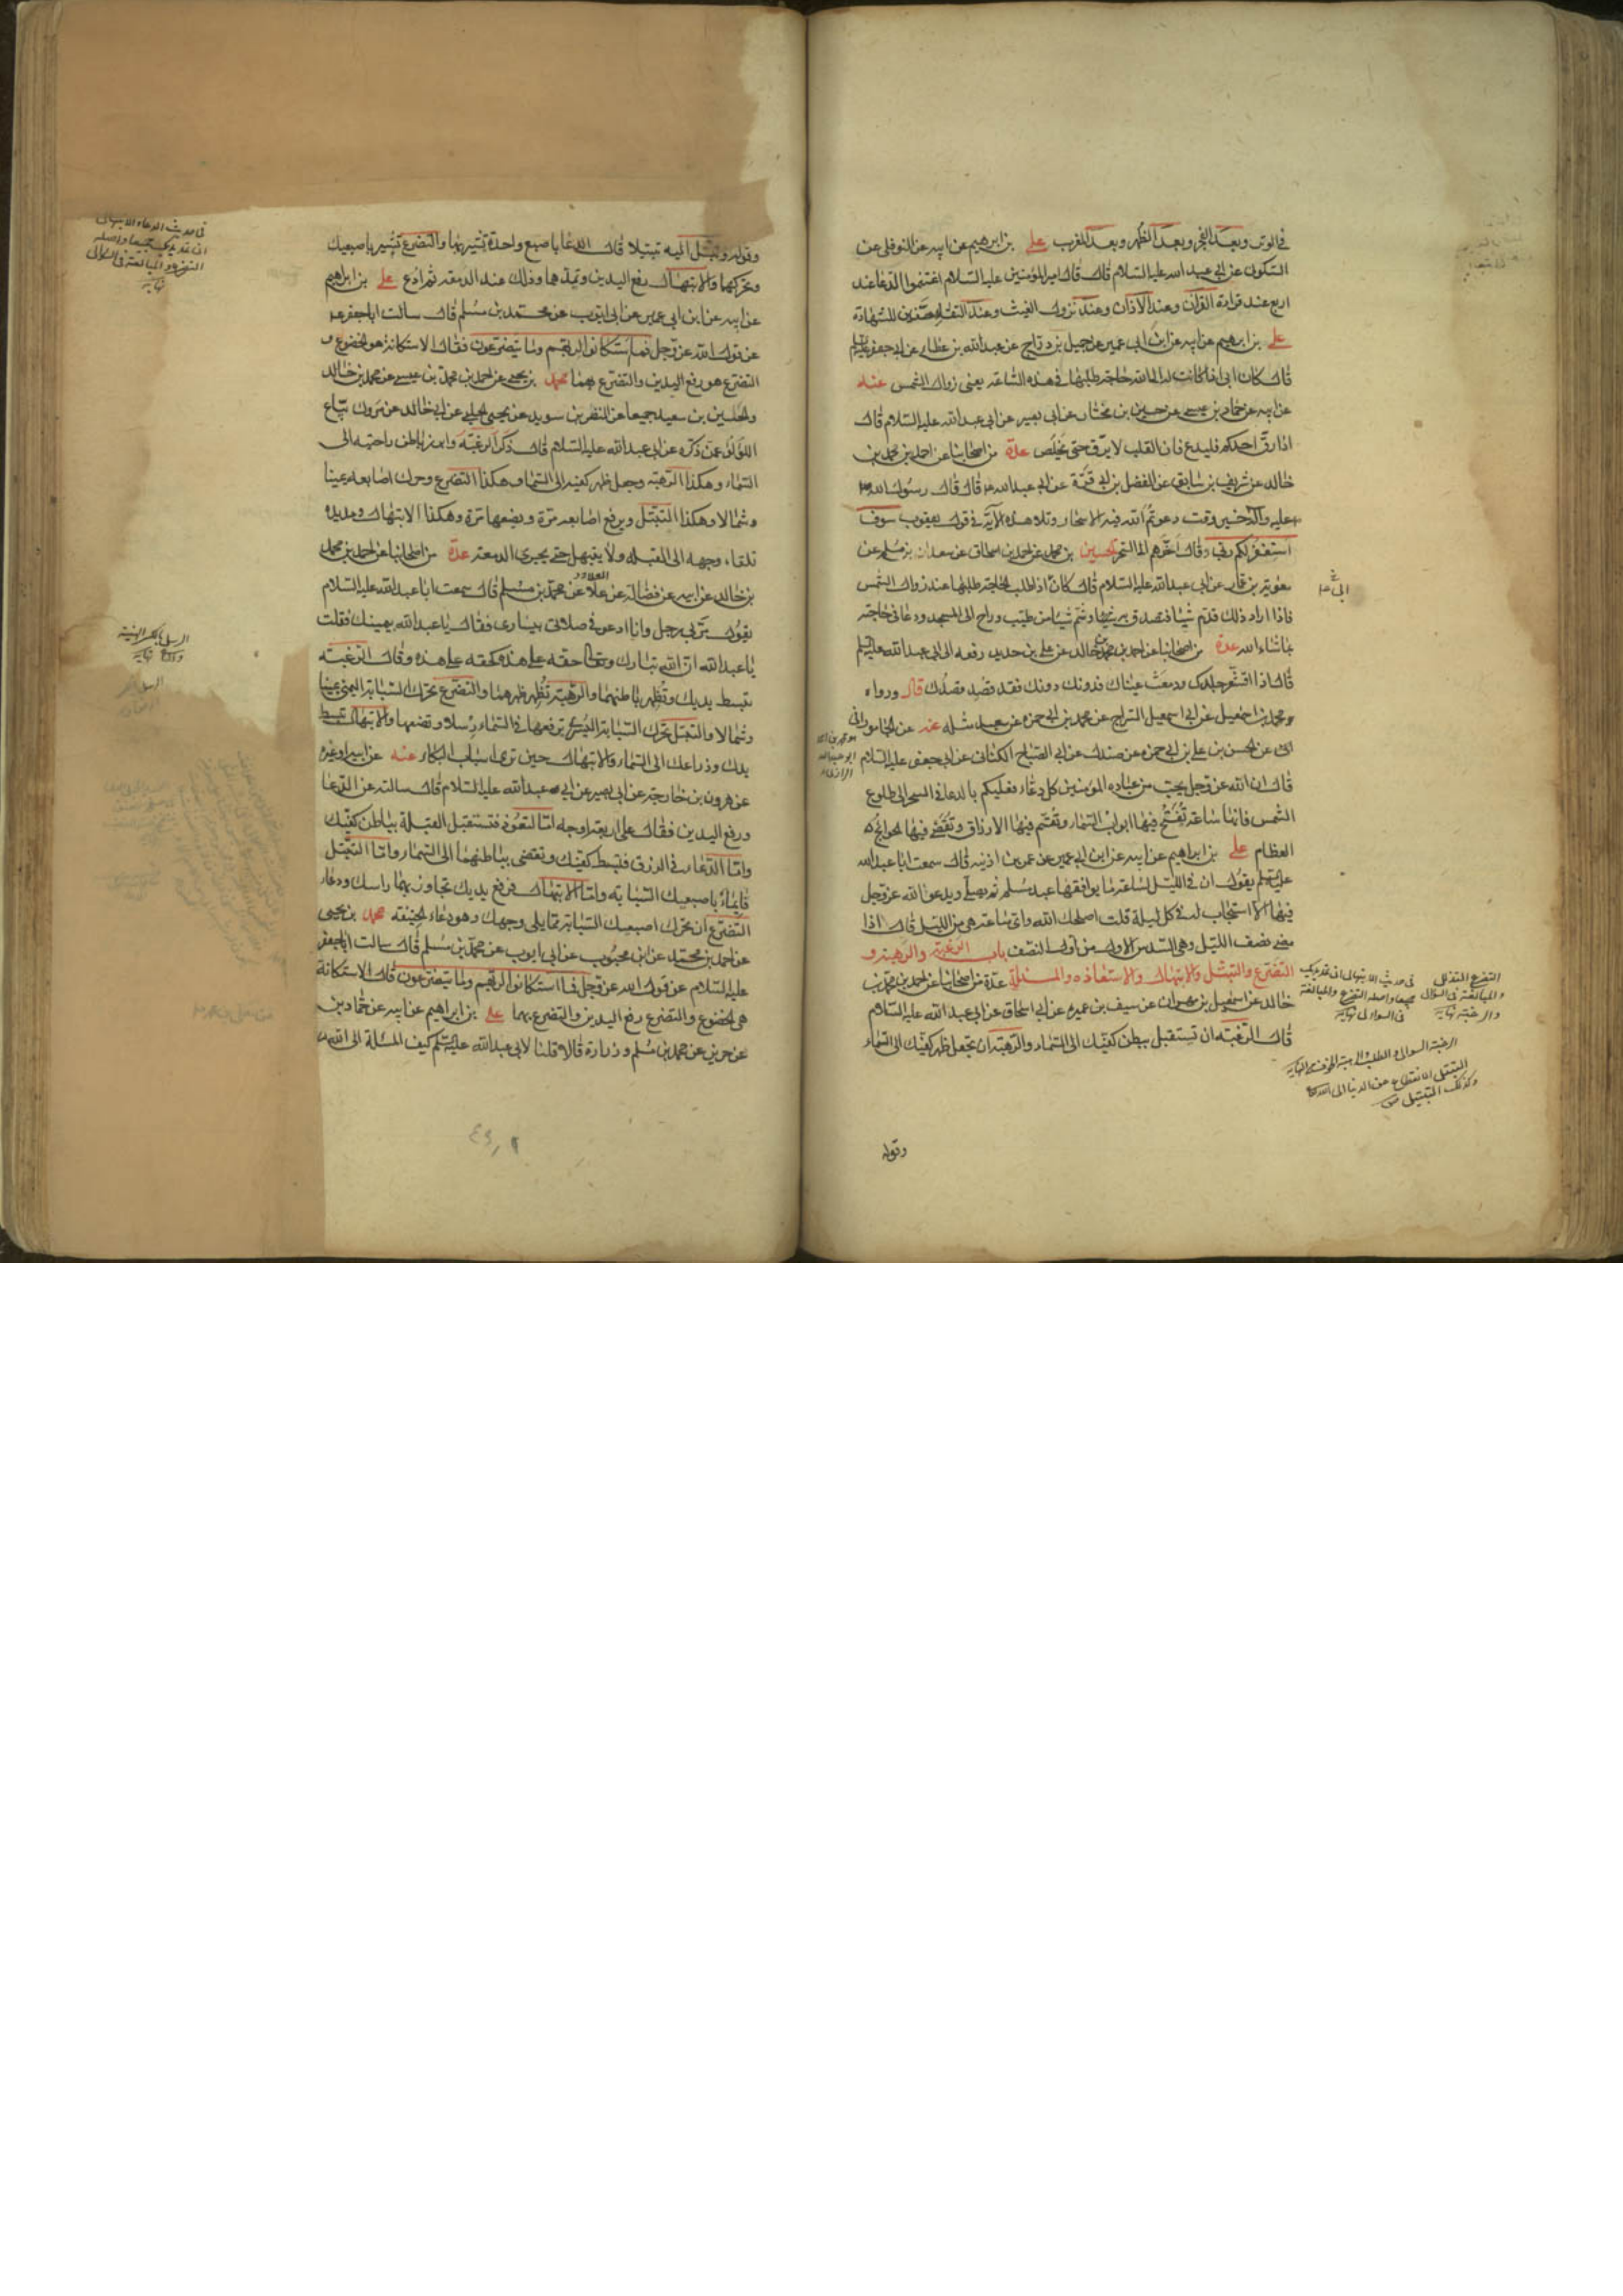 في الوتر وبعد الفجر وبعد الظهر وبعد المغرب علي بن ابرهيم عن ابيه عن النوفلي عن
السكوني عن ابي عبد الله عليه السلام قال قال امير المؤمنين عليه السلام اغتنموا الدعا عند
اربع عند قراءة القرآن وعند الاذان وعند نزول الغيث وعند التقاء الصفين للشهادة
علي بن ابرهيم عن ابيه عن ابن ابي عمير عن جميل بن دراج عن عبد الله بن عطا عن ابي جعفر عليه السلم
قال كان ابي اذا كانت له الى الله حاجة طلبها في هذه الساعة يعني زوال الشمس عنه
عن ابيه عن حماد بن عيسى عن حسين بن مختار عن ابي بصير عن ابي عبد الله عليه السلام قال
اذا رق احدكم فليدع فان القلب لا يرق حتى يخلص عدة من اصحابنا عن احمد بن محمد بن
خالد عن شريف بن سابق عن الفضل بن ابي قرة عن ابي عبد الله ع قال قال رسول الله ص
عليه واله خير وقت دعوتم الله فيه الاسحار وتلا هذه الآية في قول يعقوب سوف
استغفر لكم ربي وقال اخرهم الى السحر الحسين بن محمد عن احمد بن اسحاق عن سعدان بن مسلم عن
معوية بن عمار عن ابي عبد الله عليه السلام قال كان اذا طلب الحاجة طلبها عند زوال الشمس
فاذا اراد ذلك قدم شيئا فتصدق به وشم شيئا من طيب وراح الى المسجد ودعا في حاجته
بما شاء الله عدة من اصحابنا عن احمد بن محمد بن خالد عن علي بن حديد رفعه الى ابي عبد الله عليه السلم
قال اذا اقشعر جلدك ودمعت عيناك فدونك دونك فقد قصد قصدك قال ورواه
محمد بن اسمعيل عن ابي اسمعيل السراج عن محمد بن ابي حمزة عن سعيد مثله عنه عن الجاموراني
عن الحسن بن علي بن ابي حمزة عن صندل عن ابي الصباح الكناني عن ابي جعفر عليه السلام
قال ان الله عز وجل يحب من عباده المؤمنين كل دعاء فعليكم بالدعا في السحر الى طلوع
الشمس فانها ساعة تفتح فيها ابواب السماء وتقسم فيها الارزاق وتقضى فيها الحوائج
العظام علي بن ابراهيم عن ابيه عن ابن ابي عمير عن عمر بن اذينه قال سمعت ابا عبد الله
عليه السلم يقول ان في الليل لساعة ما يوافقها عبد مسلم ثم يصلي ويدعو الله عز وجل
فيها الا استجاب له في كل ليلة قلت اصلحك الله واي ساعة هي من الليل قال اذا
مضى نصف الليل وهي السدس الاول من اول النصف باب الرغبة والرهبة و
التضرع والتبتل والابتهال والاستعاذه والمسئلة عدة من اصحابنا عن احمد بن محمد بن
خالد عن اسمعيل بن مهران عن سيف بن عميره عن ابي اسحاق عن ابي عبد الله عليه السلام
قال الرغبة ان تستقبل ببطن كفيك الى السماء والرهبة ان تجعل ظهر كفيك الى السماء
وقوله
التضرع التذلل
والمبالغة في السؤال
والرغبة نهايه
في حديث الدعاء الابتهال ان تمد يديك
جميعا واصله التضرع والمبالغة
في السؤال نهايه
الرغبة السؤال والطلب
التبتل الانقطاع عن الدنيا الى الله
وكذلك التبتيل
وقوله وتبتل اليه تبتيلا قال الدعا باصبع واحدة تشير بها والتضرع تشير باصبعيك
وتحركهما والابتهال رفع اليدين وتمدهما وذلك عند الدمعة ثم ادع علي بن ابراهيم
عن ابيه عن ابن ابي عمير عن ابي ايوب عن محمد بن مسلم قال سالت ابا جعفر ع
عن قول الله عز وجل فما استكانوا لربهم وما يتضرعون فقال الاستكانة هو الخضوع و
التضرع هو رفع اليدين والتضرع بهما محمد بن يحيى عن احمد بن محمد بن عيسى عن محمد بن خالد
والحسين بن سعيد جميعا عن النضر بن سويد عن يحيى الحلبي عن ابي خالد عن مروك بياع
اللؤلؤ عمن ذكره عن ابي عبد الله عليه السلام قال ذكر الرغبة وابرز باطن راحتيه الى
السماء وهكذا الرهبة وجعل ظهر كفيه الى السماء وهكذا التضرع وحرك اصابعه يمينا
وشمالا وهكذا التبتل ويرفع اصابعه مرة ويضعها مرة وهكذا الابتهال ومد يده
تلقاء وجهه الى القبلة ولا يبتهل حتى يجري الدمعة عدة من اصحابنا عن احمد بن محمد
بن خالد عن ابيه عن فضالة عن علا عن محمد بن مسلم قال سمعت ابا عبد الله عليه السلام
يقول مر بي رجل وانا ادعو في صلاتي بيساري فقال يا عبد الله بيمينك فقلت
يا عبد الله ان الله تبارك وتعالى حقه على هذه كحقه على هذه وقال الرغبة
تبسط يديك وتظهر باطنهما والرهبة تظهر ظهرهما والتضرع تحرك السبابة اليمنى يمينا
وشمالا والتبتل تحرك السبابة اليسرى ترفعها في السماء رسلا وتضعها والابتهال تبسط
يدك وذراعك الى السماء والابتهال حين ترى اسباب البكاء عنه عن ابيه او غيره
عن هرون بن خارجة عن ابي بصير عن ابي عبد الله عليه السلام قال سالته عن الدعا
ورفع اليدين فقال على اربعة اوجه اما التعوذ فتستقبل القبلة بباطن كفيك
واما الدعاء في الرزق فتبسط كفيك وتفضي بباطنهما الى السماء واما التبتل
فايماء باصبعيك السبابه واما الابتهال فرفع يديك تجاوز بهما راسك ودعاء
التضرع ان تحرك اصبعيك السبابة مما يلي وجهك وهو دعاء الخيفه محمد بن يحيى
عن احمد بن محمد عن ابن محبوب عن ابي ايوب عن محمد بن مسلم قال سالت ابا جعفر
عليه السلام عن قول الله عز وجل فما استكانوا لربهم وما يتضرعون قال الاستكانة
هي الخضوع والتضرع رفع اليدين والتضرع بهما علي بن ابراهيم عن ابيه عن حماد بن
عن حريز عن محمد بن مسلم وزرارة قالا قلنا لابي عبد الله عليه السلم كيف المسئلة الى الله
في حديث الدعاء الابتهال
ان تمد يديك جميعا واصله
التضرع والمبالغة في السؤال
نهايه